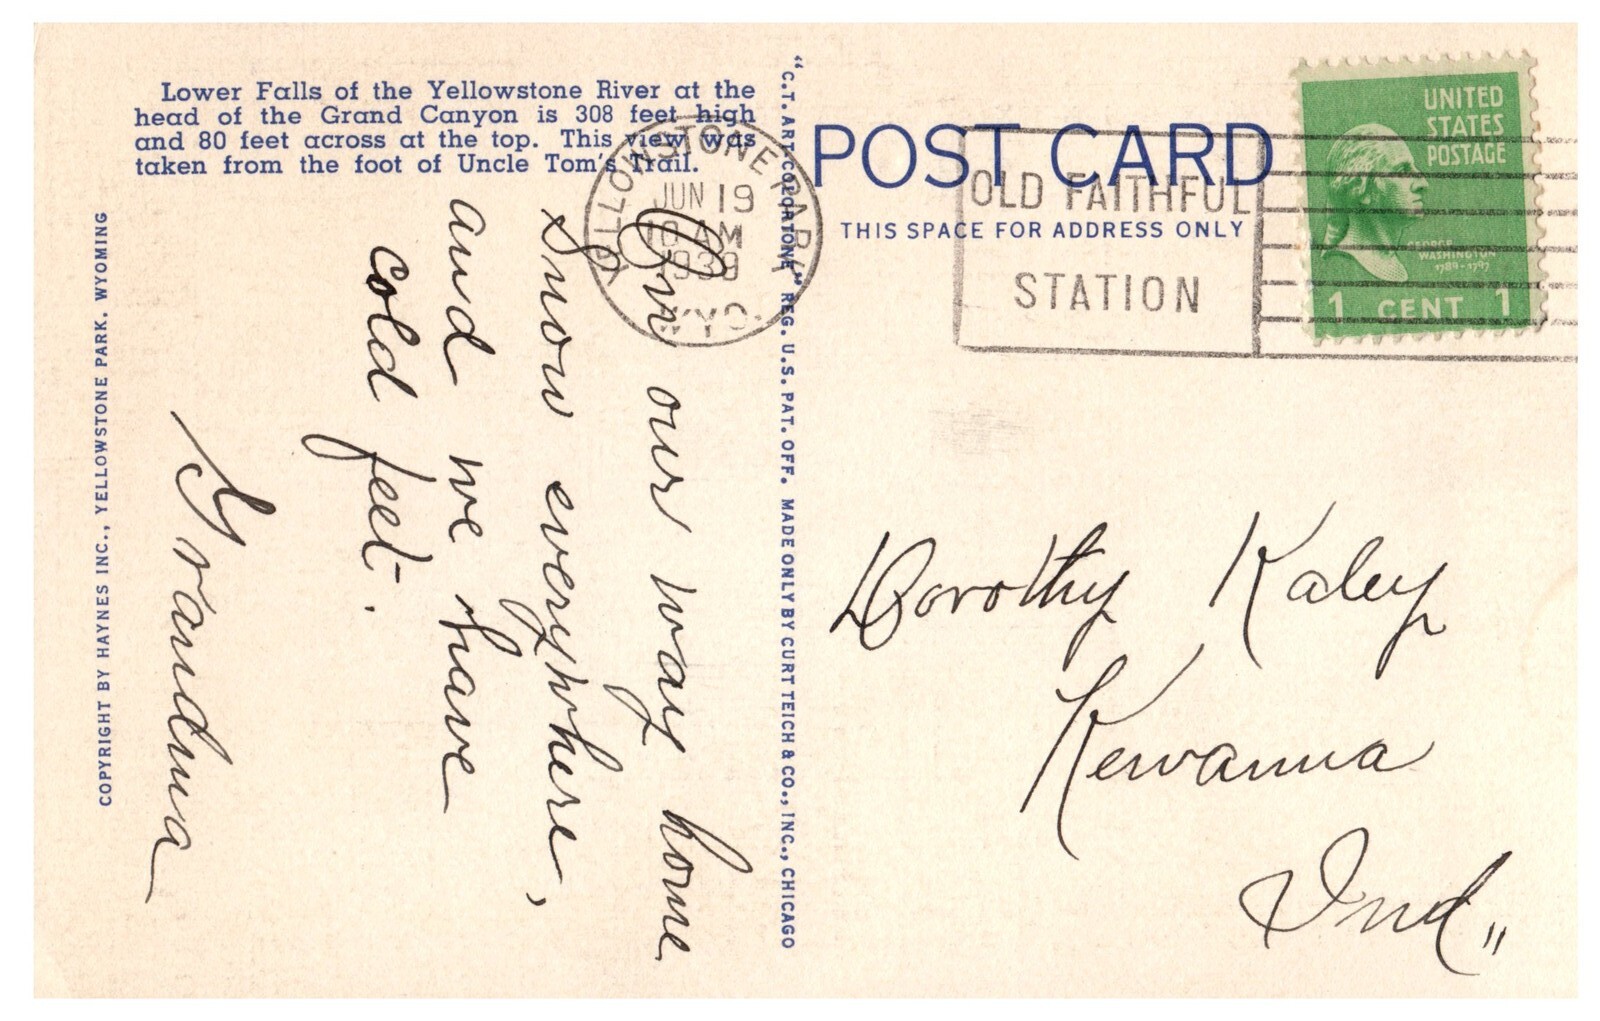 Lower Falls of the Yellowstone River at the
head of the Grand Canyon is 308 feet high
and 80 feet across at the top. This view was
taken from the foot of Uncle Tom's Trail.
COPYRIGHT BY HAYNES INC., YELLOWSTONE PARK. WYOMING
On our way home
Snow everywhere,
and we have
cold feet.
Grandma
"C.T. ART-COLORTONE" REG. U.S. PAT. OFF. MADE ONLY BY CURT TEICH & CO., INC., CHICAGO
YELLOWSTONE PARK
JUN 19
10 AM
1939
WYO.
POST CARD
THIS SPACE FOR ADDRESS ONLY
OLD FAITHFUL
STATION
UNITED
STATES
POSTAGE
GEORGE
WASHINGTON
1789-1797
1 CENT 1
Dorothy Kaley
Kewanna
Ind,,